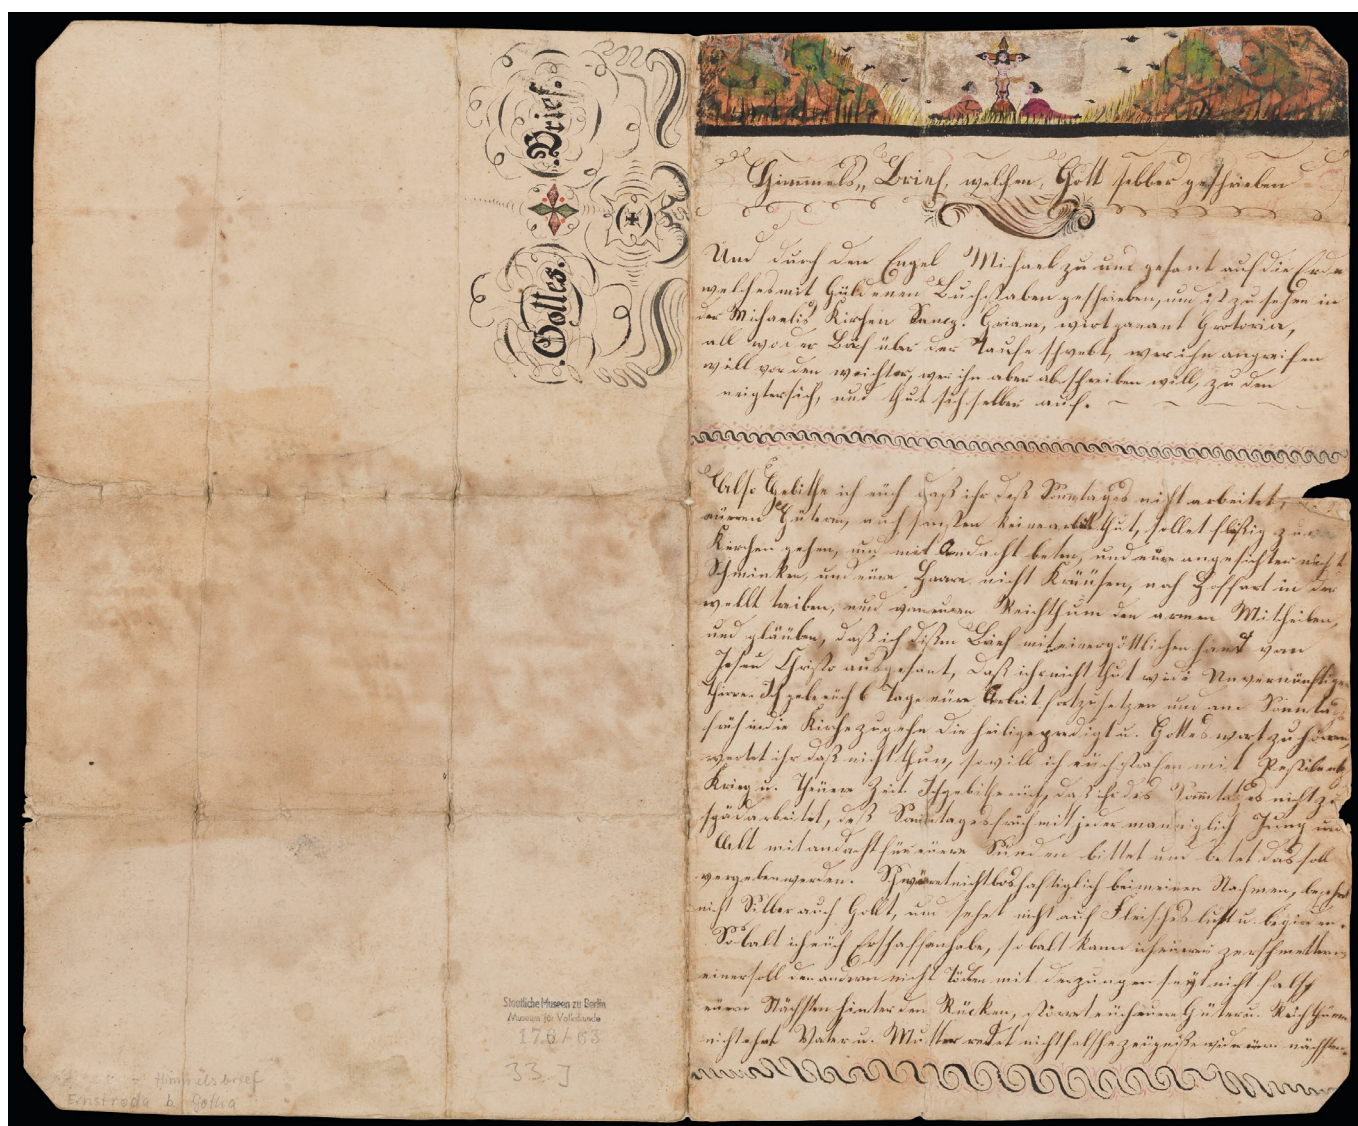 .Gottes. Brief.
Himmels„ Brief, welchen, Gott selber geschrieben
Und durch den Engel Michael zu uns gesant auf die Erde
welches mit Güldenen Buchstaben geschrieben, und ist zu sehen in
der Michaelis Kirchen Grotoria,
all wo der über der Taufe schwebt, wer ihn angreifen
will vor den weichter, wer ihn aber abschreiben will, zu den
neigter sich, und thut sich selber auf.
Also Gebithe ich eüch daß ihr deß Sonntages nicht arbeitet,
eüeren Gütern, auch sonsten keine arbeit thut, sollet fleißig zur
Kirchen gehen, und mit Andacht beten, und eure angesichter nicht
Schminken, und eüre Haare nicht Kräüsen, noch Hoffart in der
wellt treiben, und von euren Reichthum den armen Mitheilen,
und gläuben, daß ich dißen Brief mit einer göttlichen hand von
Jesu Christo ausgesant, daß ihr nicht thut wie Unvernünftige
Thiere. Ich gebe eüch 6 Tage eüre Arbeit fortzusetzen und am Sonntag
früh in die Kirche zu gehn die heilige predigt u. Gottes wort zu hören,
werdet ihr daß nicht thun, so will ich eüch strafen mit Pestilentz
Krieg u. Theüere Zeit. Ich gebithe eüch, daß ihr des Sonntages nicht zu
spädarbeitet, deß Sonntages früh mit jeder manniglich Jung und
Allt mit andacht für eüere Sünden bittet und betet daß soll
vergeben werden. Schwöret nicht boshaftiglich bei meinen Nahmen, begehrt
nicht Silber auch Gollt, und sehet nicht auf Fleisches lust u. begirden.
So balt ich eüch Erschaffen habe, so balt kann ich zerschmettern
einer soll den andern nicht Töden mit der zungen seyt nicht falsch
eüren Nächsten hinter den Rücken, eüch eurer Güter u. Reichthum
nicht ehret Vater u. Mutter redet nicht falsche zeügniße nächsten.
Staatliche Museen zu Berlin
Museum für Volkskunde
33 J
Himmelsbrief
Ernstroda b. Gotha